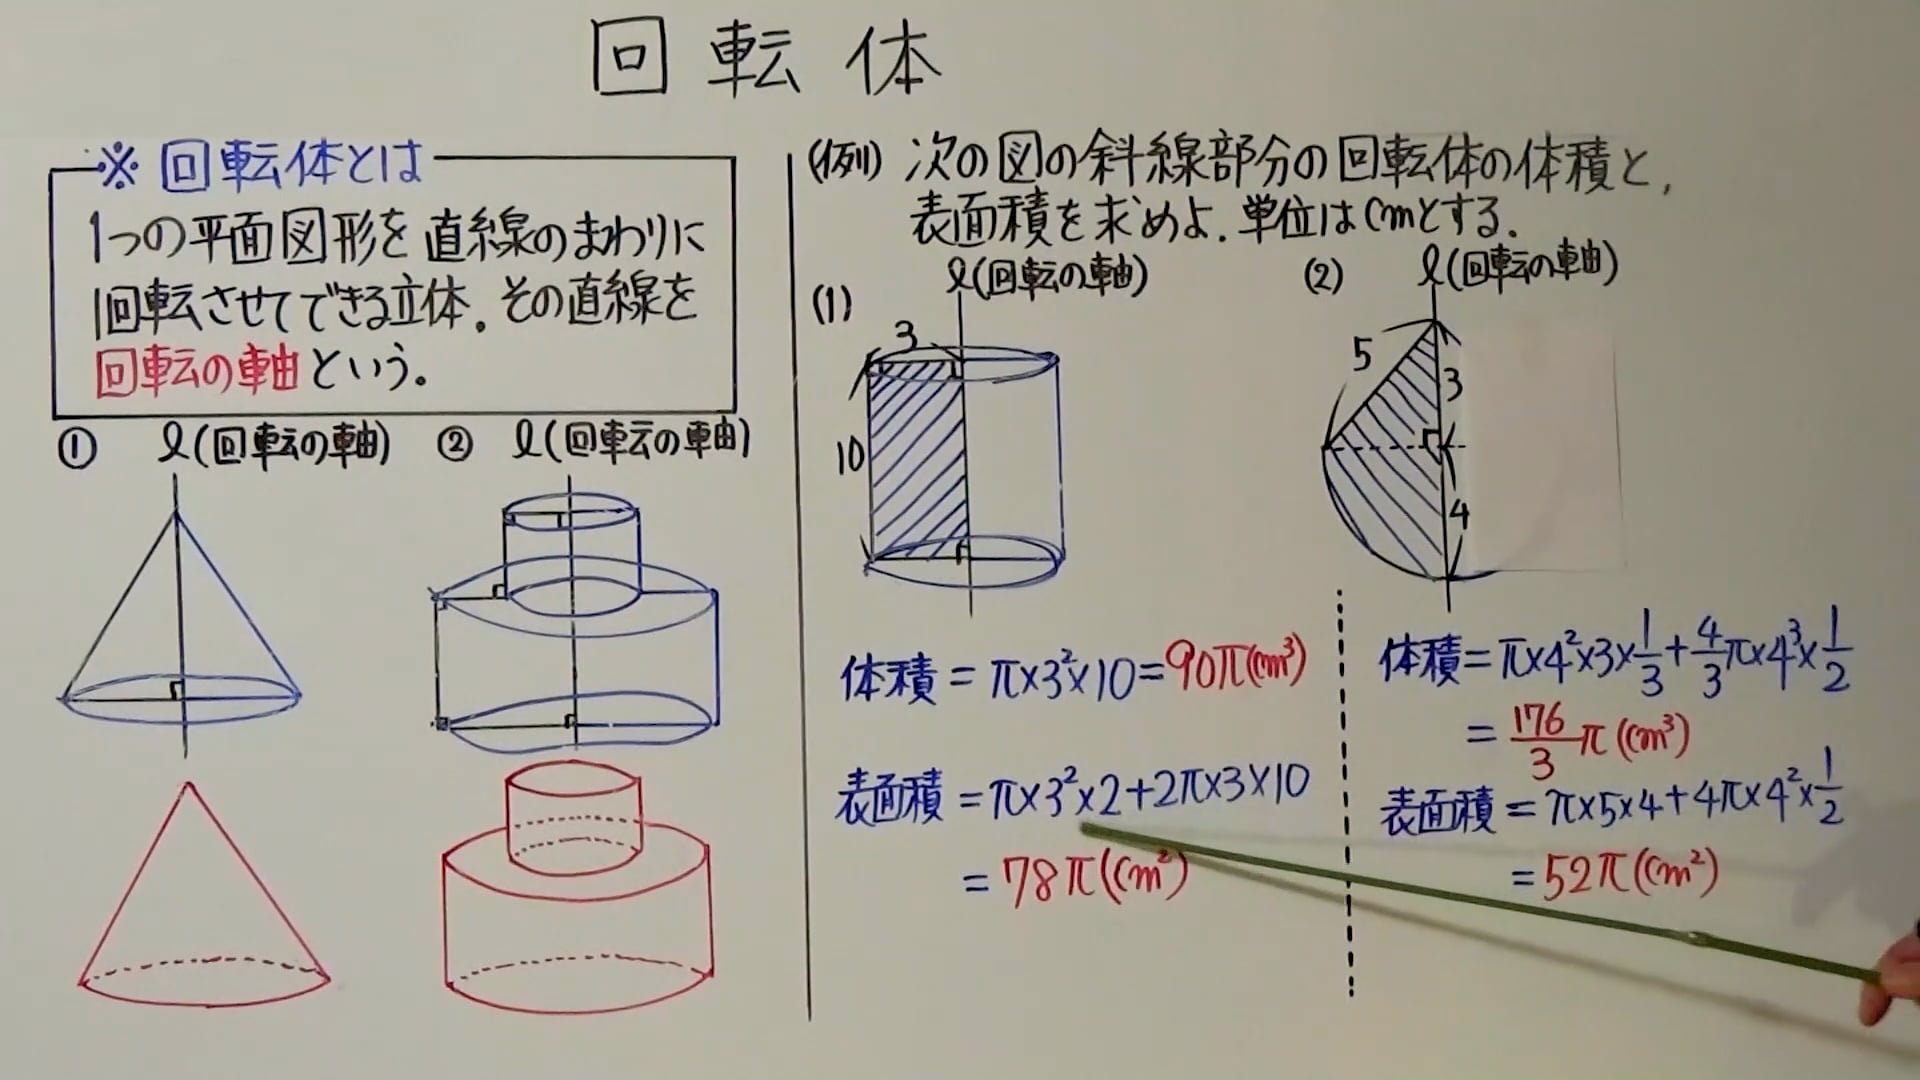 回転体
※回転体とは
1つの平面図形を直線のまわりに
1回転させてできる立体.その直線を
回転の軸という。
① l(回転の軸)
② l(回転の軸)
(例) 次の図の斜線部分の回転体の体積と,
表面積を求めよ.単位はcmとする.
(1) l(回転の軸)
3
10
体積=π×3²×10=90π(cm³)
表面積=π×3²×2+2π×3×10
=78π(cm²)
(2) l(回転の軸)
5
3
4
体積=π×4²×3×1/3+4/3π×4³×1/2
=176/3π(cm³)
表面積=π×5×4+4π×4²×1/2
=52π(cm²)